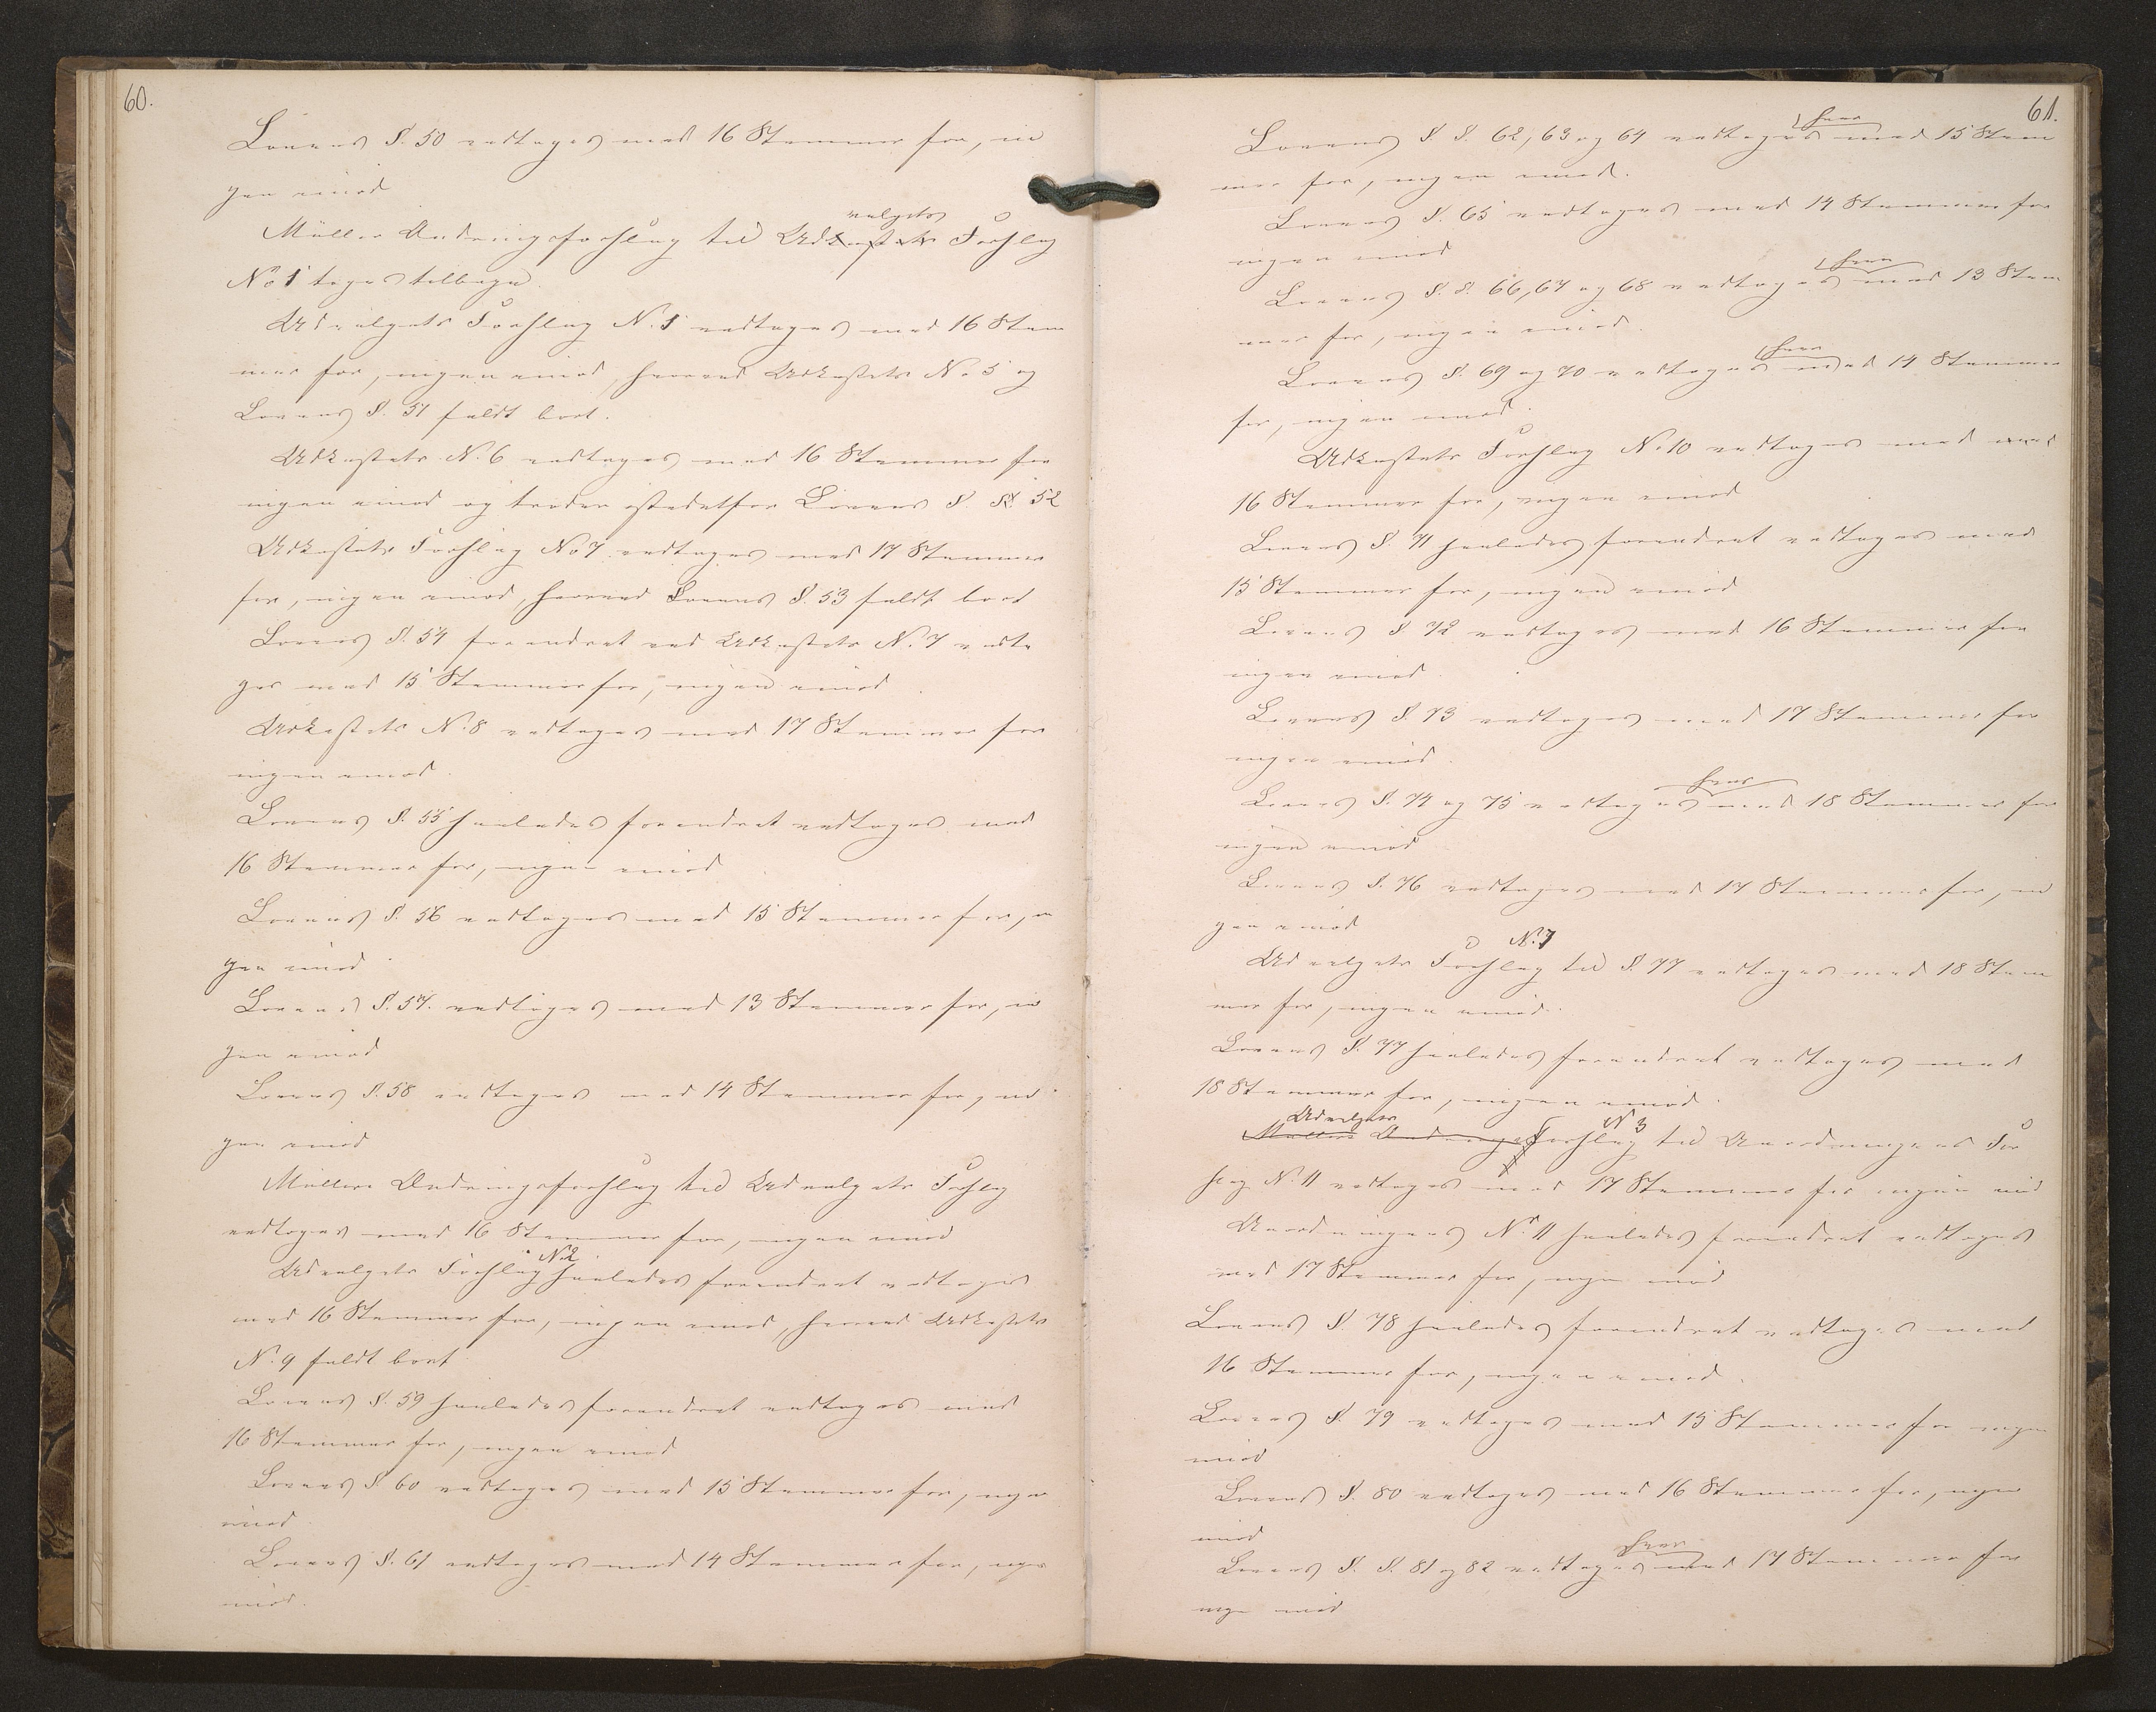 60.
Lovens §. 50 vedtoges med 16 Stemmer for, in
gen imod
Müllers Ændringsforslag til Udkastets valgets Forslag
No 1 toges tilbage.
Udvalgets Forslag N. 1 vedtoges med 16 Stem
mer for, ingen imod, hvorved Udkastets No 5 og
Lovens §. 51 faldt bort.
Udkastets N. 6 vedtoges med 16 Stemmer for
ingen imod og træder istedetfor Lovens § 52
Udkastets Forslag No 7 vedtoges med 17 Stemmer
for, ingen imod, hvorved Lovens §. 53 faldt bort
Lovens §. 54 forandret ved Udkastets N. 7 vedto
ges med 15 Stemmer for, ingen imod.
Udkastets N. 8 vedtoges med 17 Stemmer for
ingen imod.
Lovens §. 55 saaledes forandret vedtoges med
16 Stemmer for, ingen imod.
Lovens §. 56 vedtoges med 15 Stemmer for, in
gen imod
Lovens §. 57. vedtoges med 13 Stemmer for, in
gen imod
Lovens §. 58 vedtoges med 14 Stemmer for, in
gen imod
Müllers Ændringsforslag til Udvalgets Forslag
vedtoges med 16 Stemmer for, ingen imod
Udvalgets Forslag N. 2 saaledes forandret vedtoges
med 16 Stemmer for, ingen imod, hvorved Udkastets
N. 9 faldt bort
Lovens §. 59 saaledes forandret vedtoges med
16 Stemmer for, ingen imod
Lovens §. 60 vedtoges med 15 Stemmer for, ingen
imod.
Lovens §. 61 vedtoges med 14 Stemmer for, ingen
imod.
61.
Lovens §. §. 62, 63 og 64 vedtoges hver med 15 Stem
mer for, ingen imod.
Lovens §. 65 vedtoges med 14 Stemmer for
ingen imod
Lovens §. §. 66, 67 og 68 vedtoges hver med 13 Stem
mer for, ingen imod.
Lovens §. 69 og 70 vedtoges hver med 14 Stemmer
for, ingen imod.
Udkastets Forslag N. 10 vedtoges med
16 Stemmer for, ingen imod
Lovens §. 71 saaledes forandret vedtoges med
15 Stemmer for, ingen imod
Lovens § 72 vedtoges med 16 Stemmer for
ingen imod.
Lovens §. 73 vedtoges med 17 Stemmer for
ingen imod.
Lovens §. 74 og 75 vedtoges hver med 18 Stemmer for
ingen imod
Lovens §. 76 vedtoges med 17 Stemmer for, in
gen imod
Udvalgets Forslag N. 7 til §. 77 vedtoges med 18 Stem
mer for, ingen imod.
Lovens §. 77 saaledes forandret vedtoges med
18 Stemmer for, ingen imod.
Müllers Ændrings Udvalgets Forslag N 3 til Anordningens For
slag N. 11 vedtoges med 17 Stemmer for ingen imod
Anordningens N. 11 saaledes forandret vedtoges
med 17 Stemmer for, ingen imod
Lovens §. 78 saaledes forandret vedtoges med
16 Stemmer for, ingen imod.
Lovens §. 79 vedtoges med 15 Stemmer for ingen
imod
Lovens §. 80 vedtoges med 16 Stemmer for, ingen
imod
Lovens §. §. 81 og 82 vedtoges hver med 17 Stemmer for
ingen imod